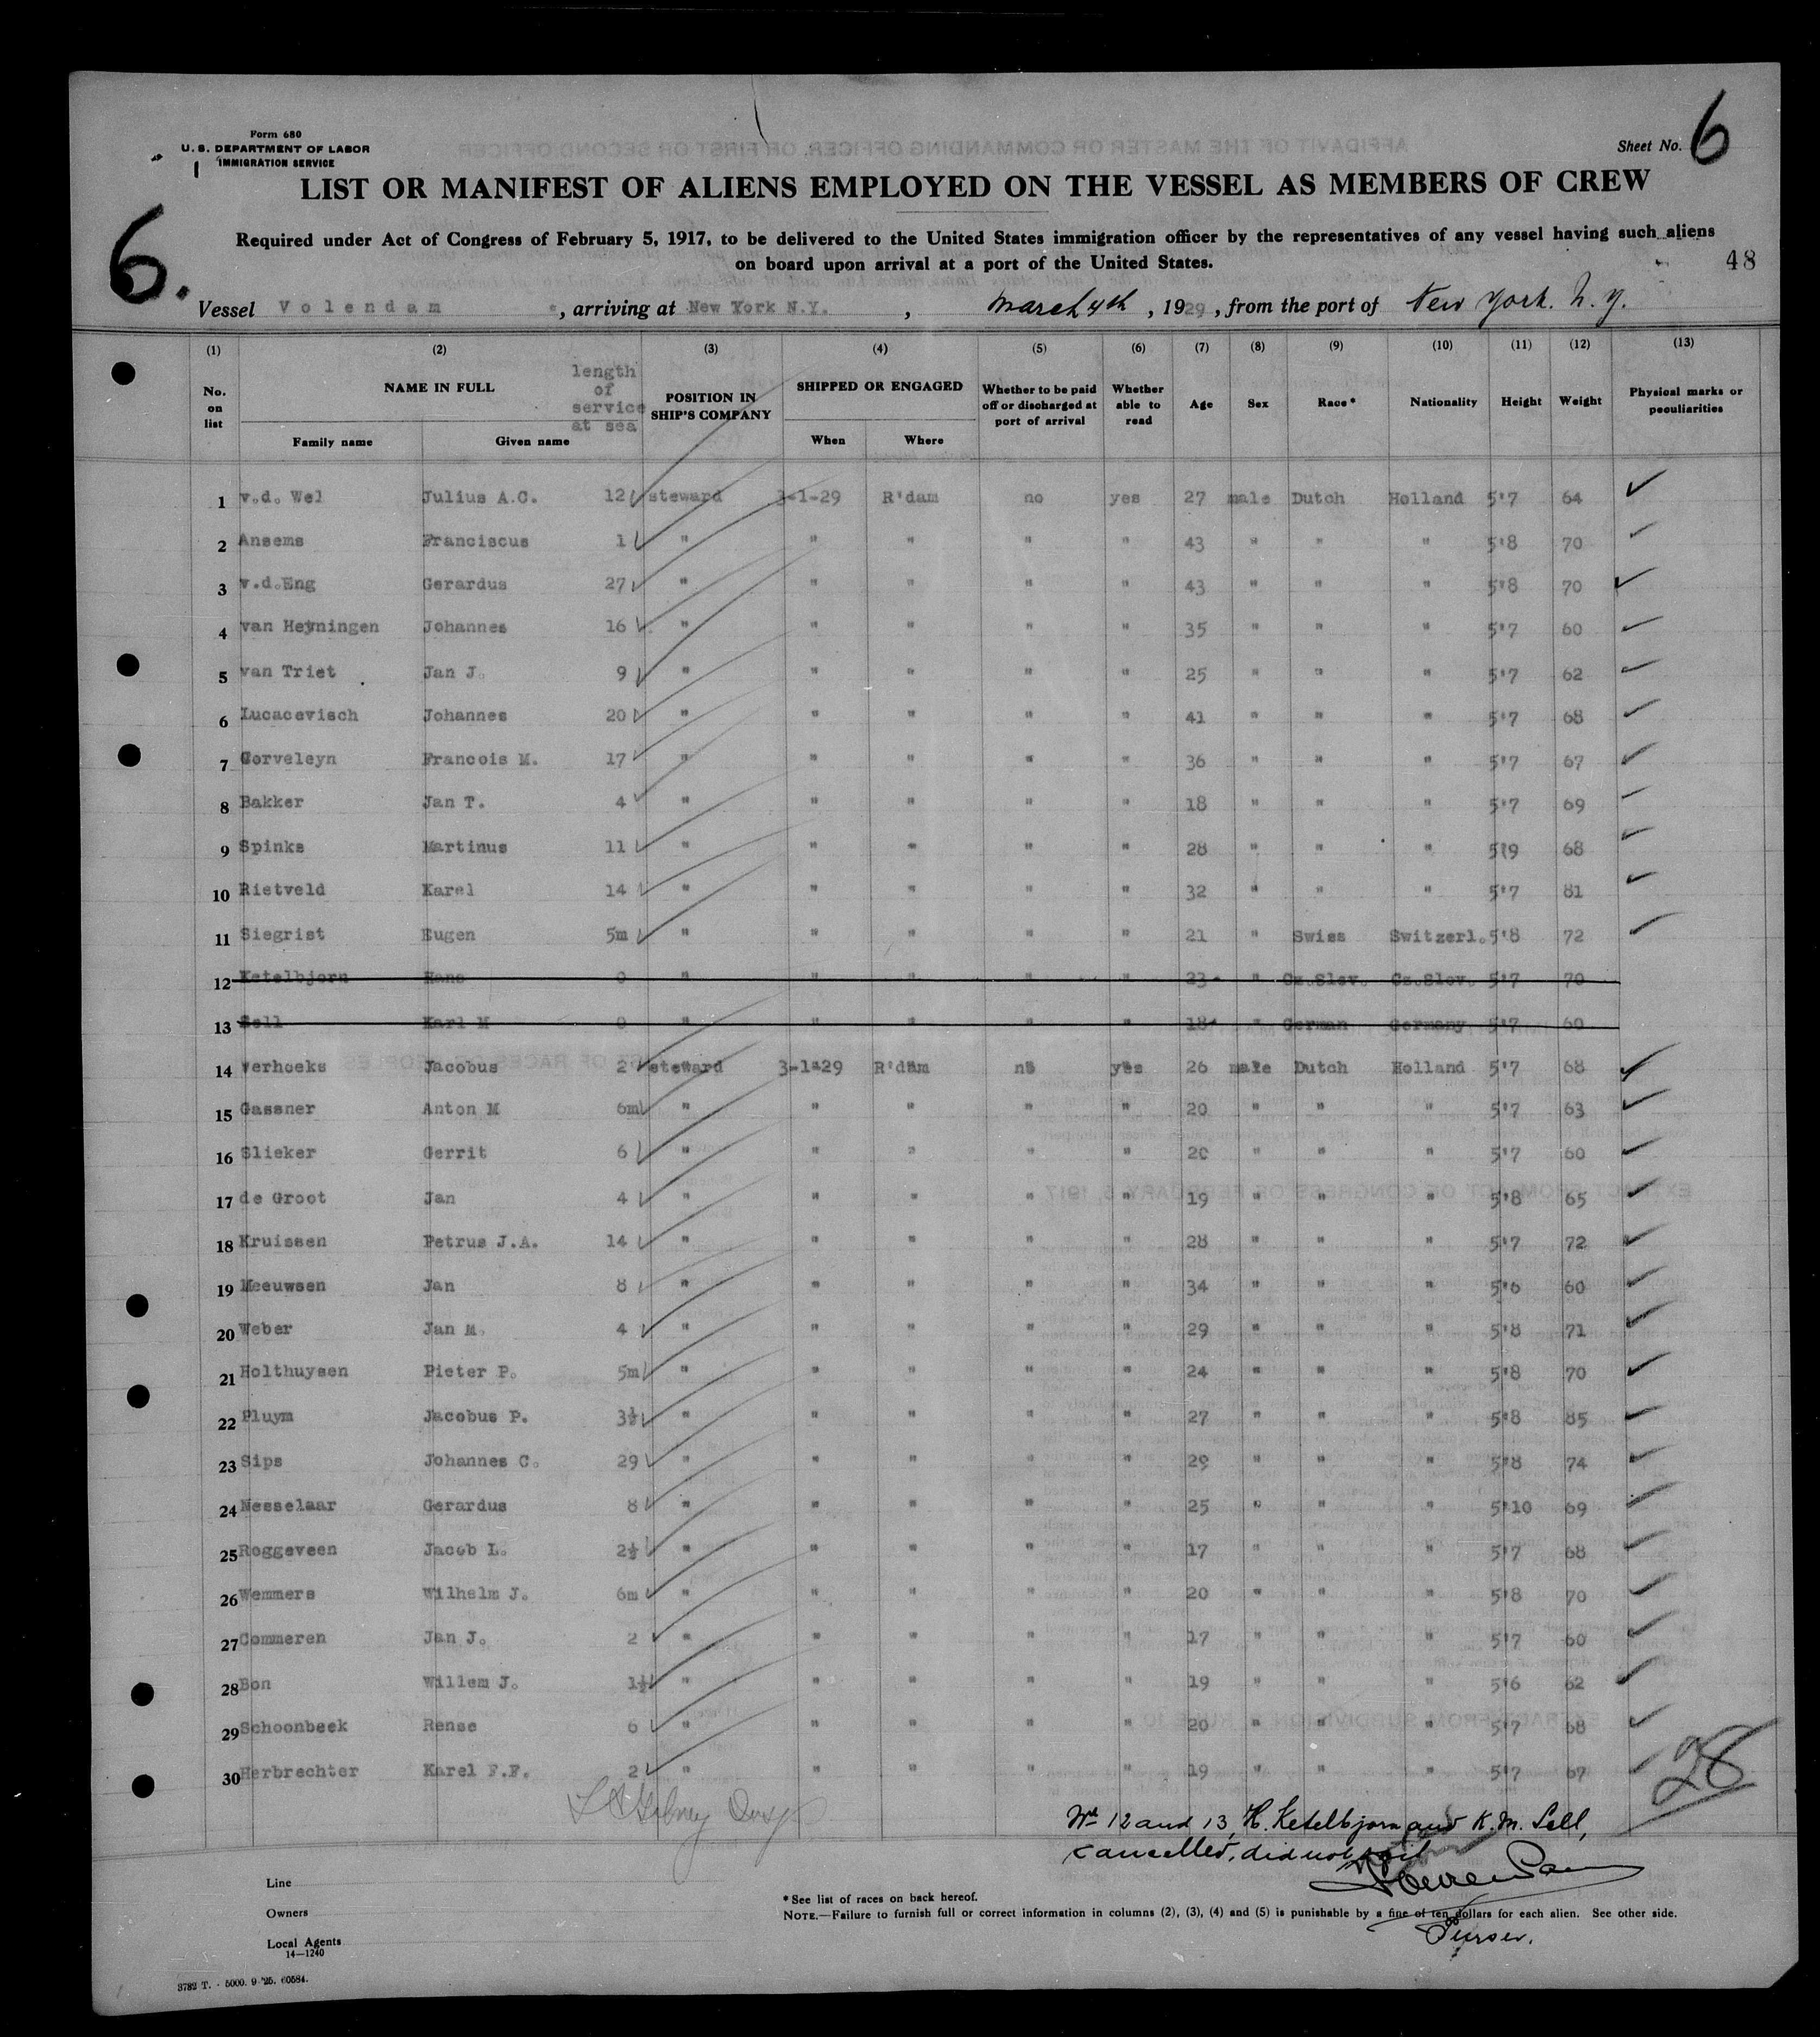 Form 680
U. S. DEPARTMENT OF LABOR
IMMIGRATION SERVICE
Sheet No. 6
LIST OR MANIFEST OF ALIENS EMPLOYED ON THE VESSEL AS MEMBERS OF CREW
6.
Required under Act of Congress of February 5, 1917, to be delivered to the United States immigration officer by the representatives of any vessel having such aliens
on board upon arrival at a port of the United States.
48
Vessel Volendam, arriving at New York N.Y., March 4th, 1929, from the port of New York. N.Y.
(1) (2) (3) (4) (5) (6) (7) (8) (9) (10) (11) (12) (13)
No. on list NAME IN FULL length of service at sea POSITION IN SHIP'S COMPANY SHIPPED OR ENGAGED Whether to be paid off or discharged at port of arrival Whether able to read Age Sex Race* Nationality Height Weight Physical marks or peculiarities
Family name Given name When Where
1 v.d. Wel Julius A.C. 12 steward 3-1-29 R'dam no yes 27 male Dutch Holland 5'7 64
2 Ansems Franciscus 1 " " " " " 43 " " " 5'8 70
3 v.d.Eng Gerardus 27 " " " " " 43 " " " 5'8 70
4 van Heyningen Johannes 16 " " " " " 35 " " " 5'7 60
5 van Triet Jan J. 9 " " " " " 25 " " " 5'7 62
6 Lucacevisch Johannes 20 " " " " " 41 " " " 5'7 68
7 Corveleyn Francois M. 17 " " " " " 36 " " " 5'7 67
8 Bakker Jan T. 4 " " " " " 18 " " " 5'7 69
9 Spinks Martinus 11 " " " " " 28 " " " 5'9 68
10 Rietveld Karel 14 " " " " " 32 " " " 5'7 81
11 Siegrist Eugen 5m " " " " " 21 " Swiss Switzerl. 5'8 72
12 Ketelbjorn Hans 0 " " " " " 23 " Cz.Slov. Cz.Slov. 5'7 70
13 Sell Karl M 0 " " " " " 18 " German Germany 5'7 60
14 Verhoeks Jacobus 2 steward 3-1-29 R'dam no yes 26 male Dutch Holland 5'7 68
15 Gassner Anton M 6m " " " " " 20 " " " 5'7 63
16 Slieker Gerrit 6 " " " " " 20 " " " 5'7 60
17 de Groot Jan 4 " " " " " 19 " " " 5'8 65
18 Kruissen Petrus J.A. 14 " " " " " 28 " " " 5'7 72
19 Meeuwsen Jan 8 " " " " " 34 " " " 5'6 60
20 Weber Jan M. 4 " " " " " 29 " " " 5'8 71
21 Holthuysen Pieter P. 5m " " " " " 24 " " " 5'8 70
22 Pluym Jacobus P. 3½ " " " " " 27 " " " 5'8 85
23 Sips Johannes C. 29 " " " " " 29 " " " 5'8 74
24 Nesselaar Gerardus 8 " " " " " 25 " " " 5'10 69
25 Roggeveen Jacob L. 2½ " " " " " 17 " " " 5'7 68
26 Wemmers Wilhelm J. 6m " " " " " 20 " " " 5'8 70
27 Commeren Jan J. 2 " " " " " 17 " " " 5'7 60
28 Bon Willem J. 1½ " " " " " 19 " " " 5'6 62
29 Schoonbeek Rense 6 " " " " " 20 " " " 5'7 68
30 Herbrechter Karel F.F. 2 " " " " " 19 " " " 5'7 67
28
No 12 and 13, H. Ketelbjorn and K. M. Sell,
cancelled, did not sail
Purser.
Line
Owners
Local Agents
14—1240
* See list of races on back hereof.
NOTE.—Failure to furnish full or correct information in columns (2), (3), (4) and (5) is punishable by a fine of ten dollars for each alien. See other side.
3782 T. - 5000. 9-'25. 60584.